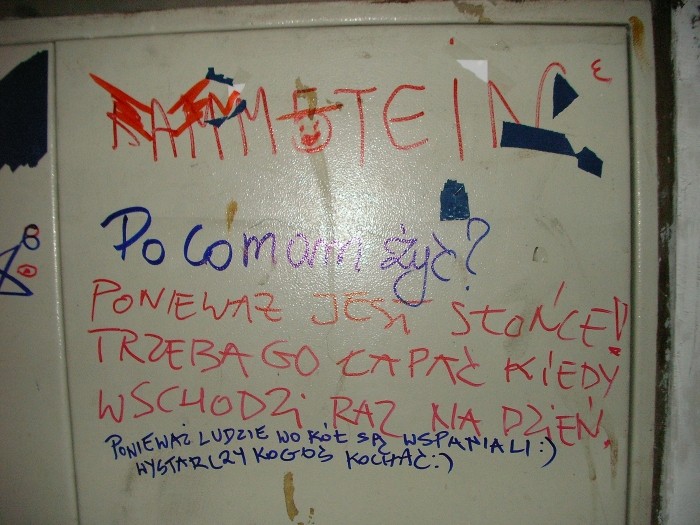 RAMMSTEIN
Po co mam żyć?
PONIEWAŻ JEST SŁOŃCE!
TRZEBA GO ŁAPAĆ KIEDY
WSCHODZI RAZ NA DZIEŃ.
PONIEWAŻ LUDZIE WOKÓŁ SĄ WSPANIALI :)
WYSTARCZY KOGOŚ KOCHAĆ :)